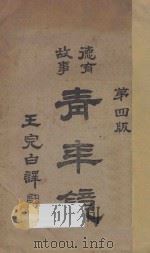 第四版
德育
故事
青年鏡
王完白譯
www.mtoou.info